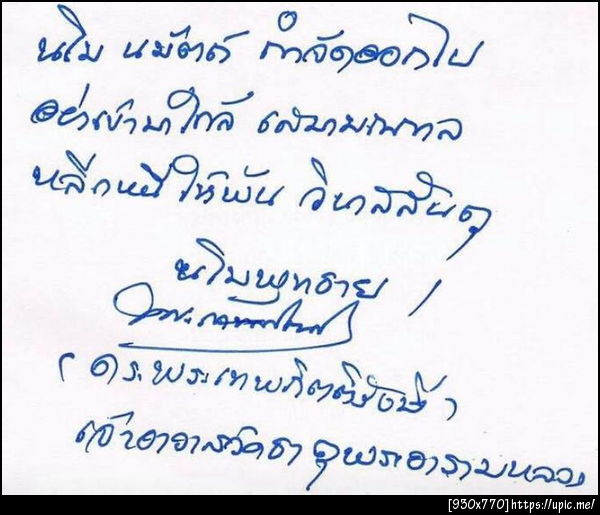 นโม นมัตถ์ กำจัดออกไป
อย่าเข้ามาใกล้ เสนามาพาล
หลีกหนีให้พ้น วินาสสันตุ
นโมพุทธาย
(ดร.พระเทพกิตติรังษี)
เจ้าอาวาสวัดธาตุพระอารามหลวง
[930x770]https://upic.me/